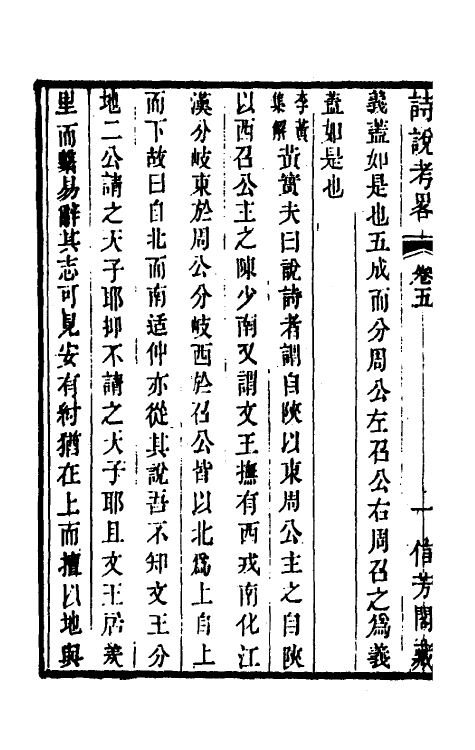 詩說考畧 卷五 一 信芳閣藏
義蓋如是也五成而分周公左召公右周召之爲義
蓋如是也
李黃集解 黃實夫曰說詩者謂自陝以東周公主之自陝
以西召公主之陳少南又謂文王撫有西戎南化江
漢分岐東於周公分岐西於召公皆以北爲上自上
而下故曰自北而南适仲亦從其說吾不知文王分
地二公請之天子耶抑不請之天子耶且文王居羑
里而繫易辭其志可見安有紂猶在上而擅以地與